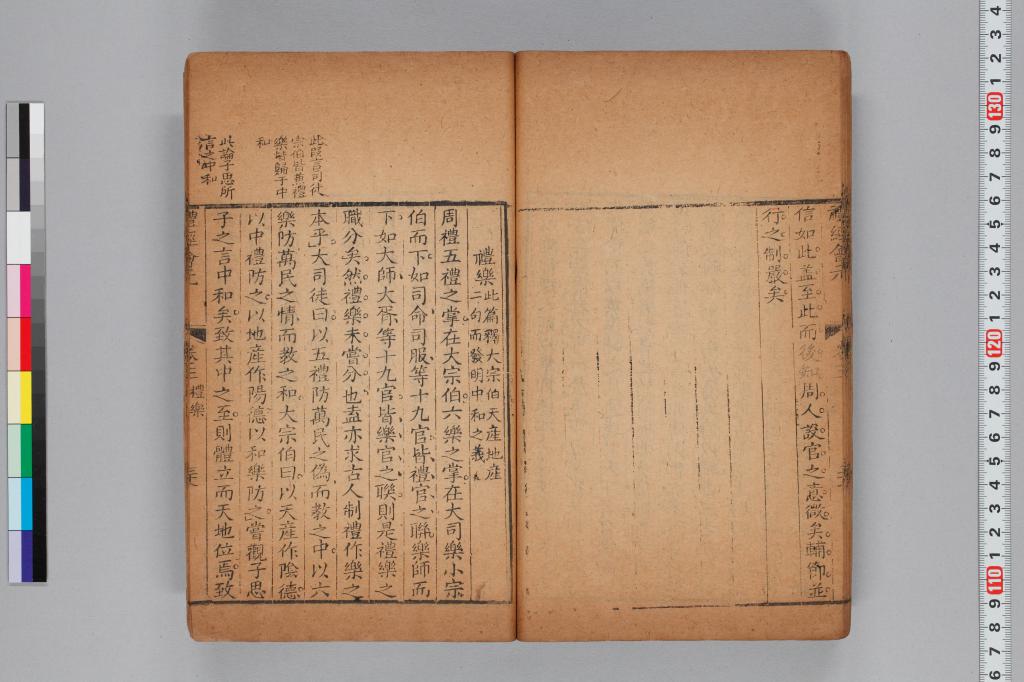 信如此盖至此而後知周人設官之意微矣輔御並
行之制嚴矣
禮樂 此篇釋大宗伯天産地産
二句而發明中和之義
此段言司徒
宗伯皆以禮
樂皆歸于中
和
周禮五禮之掌在大宗伯六樂之掌在大司樂小宗
伯而下如司命司服等十九官皆禮官之聮樂師而
下如大師大胥等十九官皆樂官之聯則是禮樂之
職分矣然禮樂未嘗分也盍亦求古人制禮作樂之
本乎大司徒曰以五禮防萬民之偽而教之中以六
樂防萬民之情而教之和大宗伯曰以天産作陰德
以中禮防之以地産作陽德以和樂防之嘗觀子思
此論子思所
言之中和
子之言中和矣致其中之至則體立而天地位焉致
禮經會元
卷三 禮樂